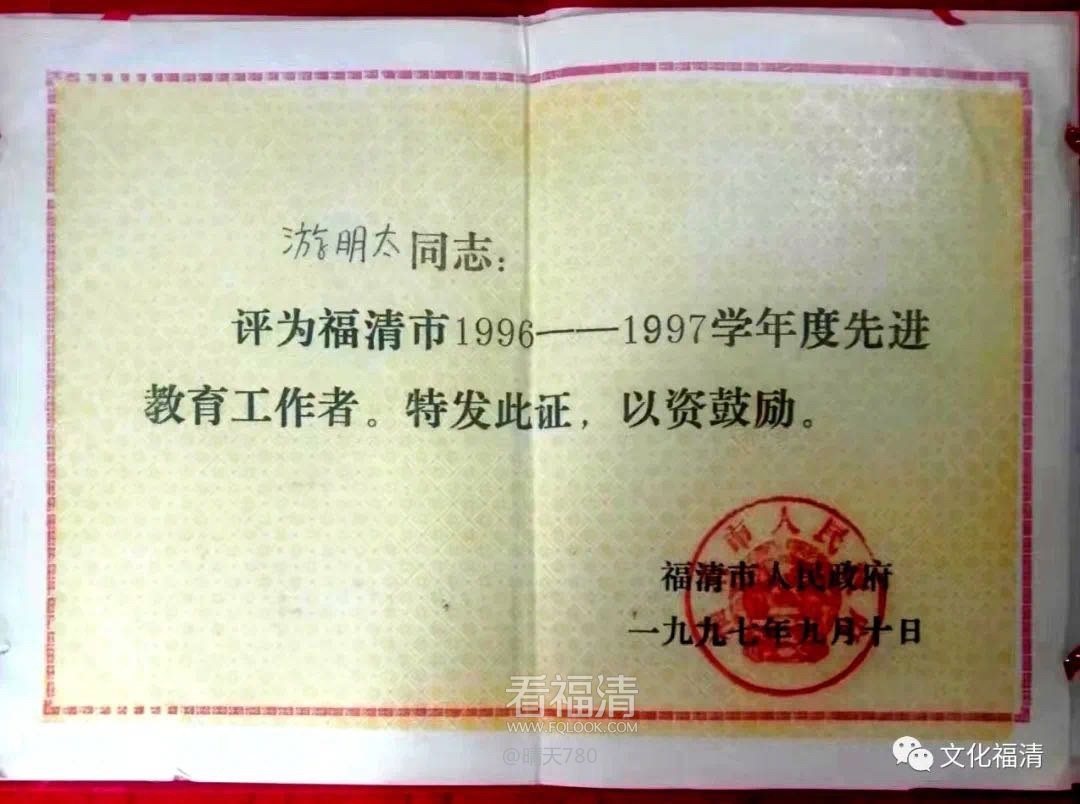 游明太同志：
评为福清市1996——1997学年度先进
教育工作者。特发此证，以资鼓励。
市人民
福清市人民政府
一九九七年九月十日
看福清
WWW.FQLOOK.COM
@晴天780
文化福清